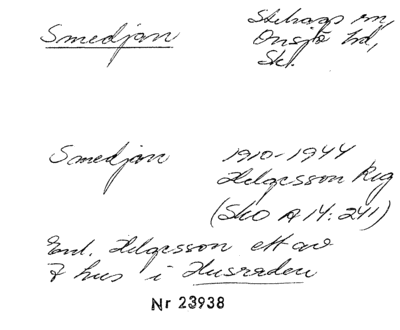 Smedjan
Stehags sn,
Onsjö hd,
Sk.
Smedjan
1910-1944
Helgesson Reg
(SkO A 14: 241)
Enl. Helgesson ett av
7 hus i Husraden
Nr 23938